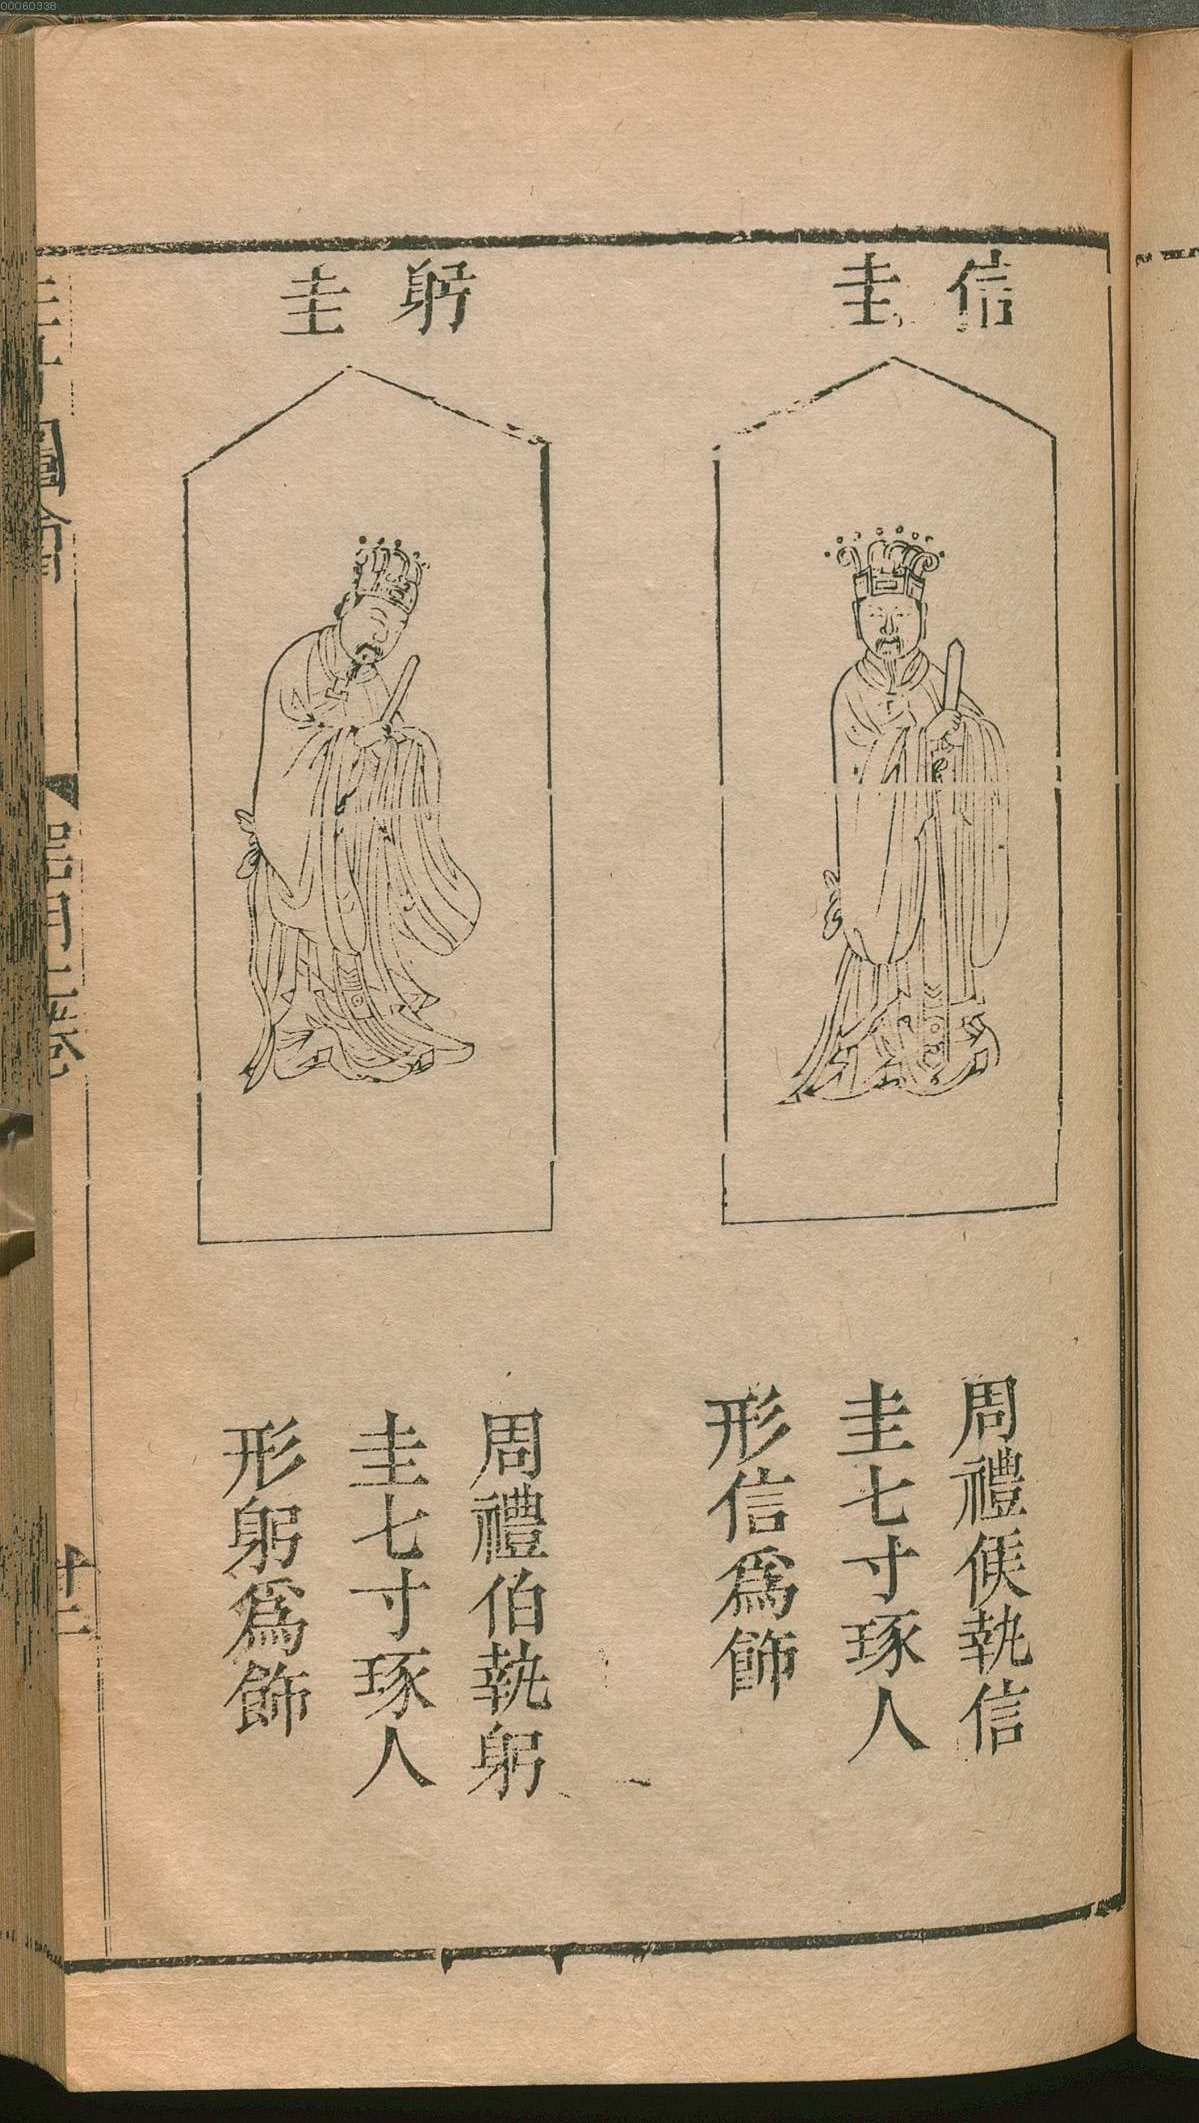 00060338
信圭
周禮侯執信
圭七寸琢人
形信爲飾
躬圭
周禮伯執躬
圭七寸琢人
形躬爲飾
三才圖會